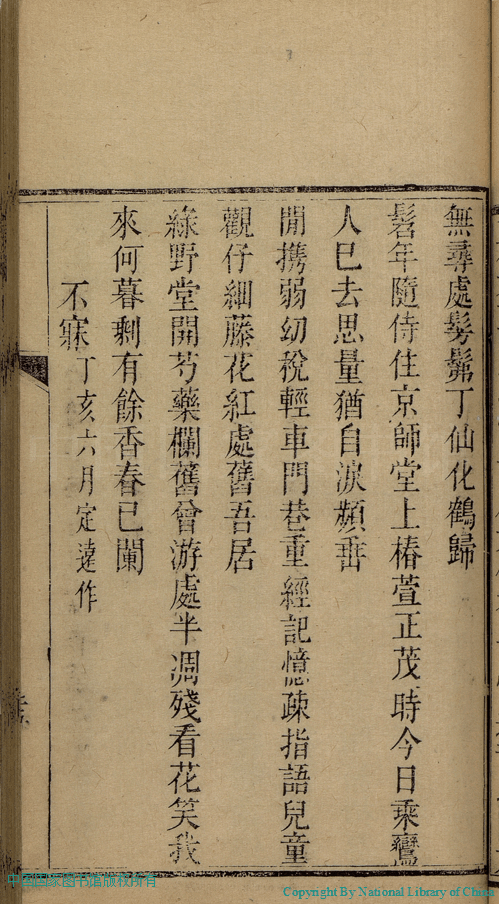 無尋處髣髴丁仙化鶴歸
髫年隨侍住京師堂上椿萱正茂時今日乘鸞
人已去思量猶自淚頻垂
閒攜弱幼稅輕車門巷重經記憶疎指語兒童
觀仔細藤花紅處舊吾居
綠野堂開芍藥欄舊曾游處半凋殘看花笑我
來何暮剩有餘香春已闌
不寐丁亥六月定遠作
中國國家圖書館版權所有
Copyright By National Library of China